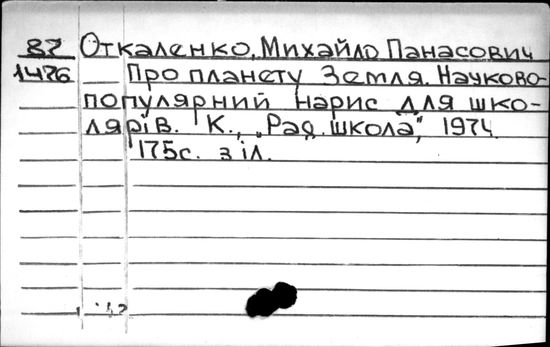 87 Откаленко, Михайло Панасович
1476 Про планету Земля. Науково-
популярний нарис для шко-
лярів. К., „Рад. школа", 1974.
175с. з іл.